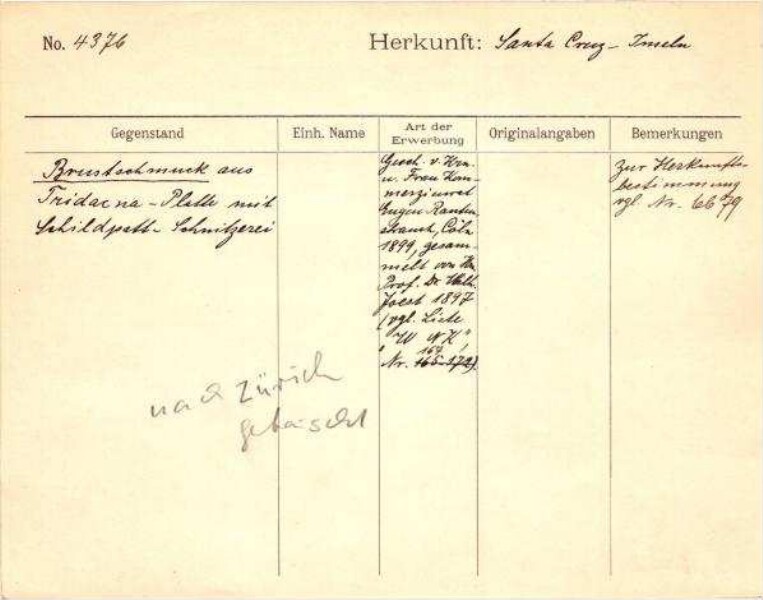 No. 4376
Herkunft: Santa Cruz-Inseln
Gegenstand
Einh. Name
Art der
Erwerbung
Originalangaben
Bemerkungen
Brustschmuck aus
Tridacna-Platte mit
Schildpatt-Schnitzerei
Gesch. v. Hrn.
u. Frau Kom-
merzienrat
Eugen Rauten-
strauch, Cöln
1899, gesam-
melt von Hn.
Prof. Dr. Wilh.
Joest 1897
(vgl. Liste
Nr. 164
Zur Herkunfts-
bestimmung
vgl. Nr. 6679
nach Zürich
getauscht